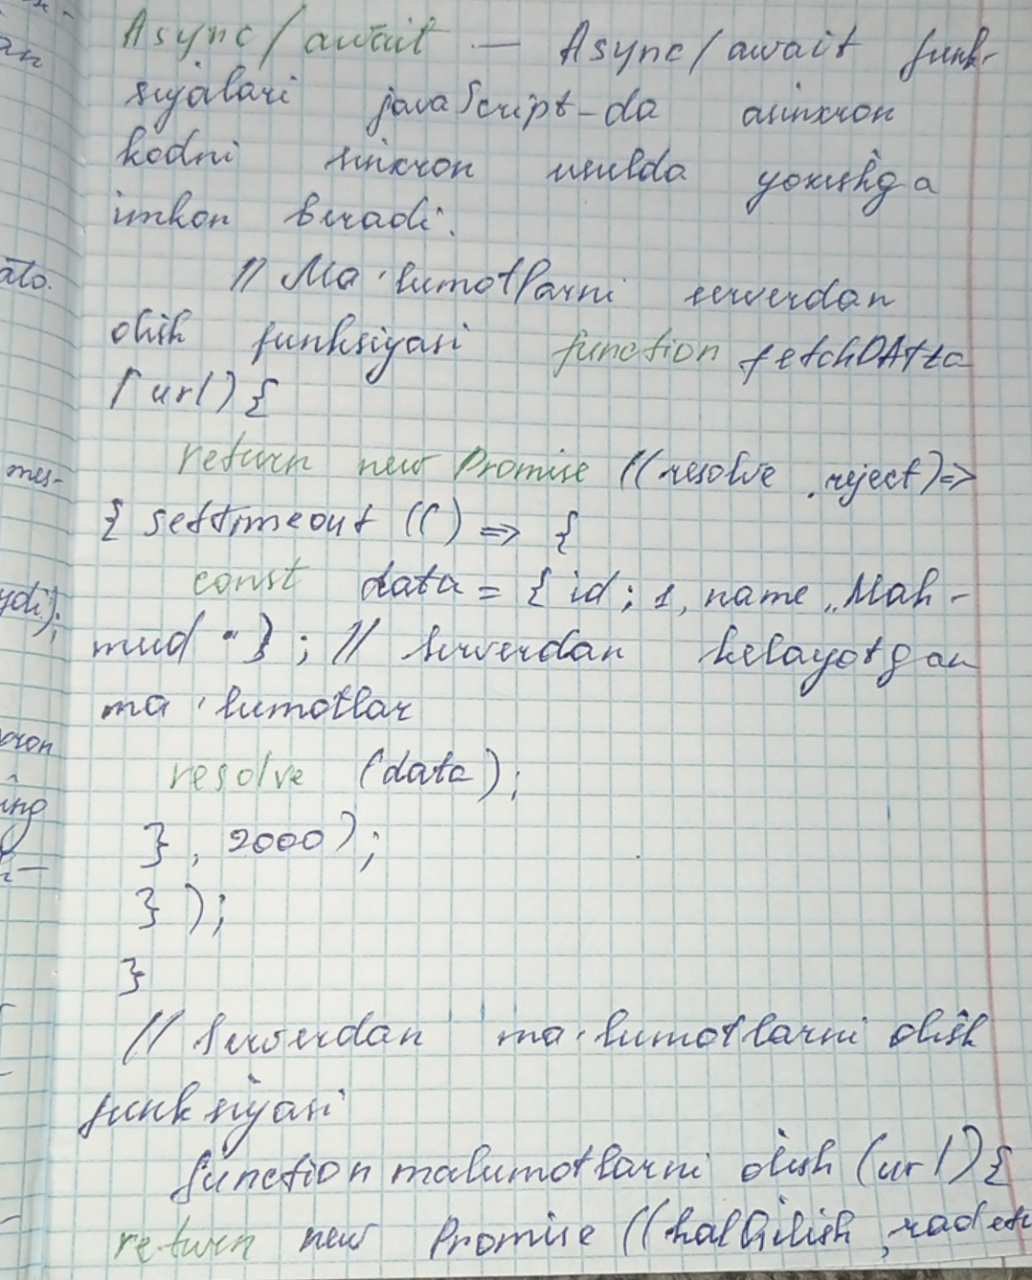 Async/await — Async/await funk-
siyalari javaScript-da asinxron
kodni sinxron usulda yoxishga
imkon beradi.
// Ma'lumotlarni serverdan
olish funksiyasi function fetchDAtta
(url) {
return new Promise ((resolve, reject) =>
{ settimeout (() => {
const data = { id; 1, name „Mah-
mud" } ; // serverdan kelayotgan
ma'lumotlar
resolve (data);
} , 2000);
} );
}
// Serverdan ma'lumotlarni olish
funksiyasi
function malumotlarni olish (url) {
return new Promise ((halQilish, rad eti
an
ato.
mes-
ydi);
cron
ing